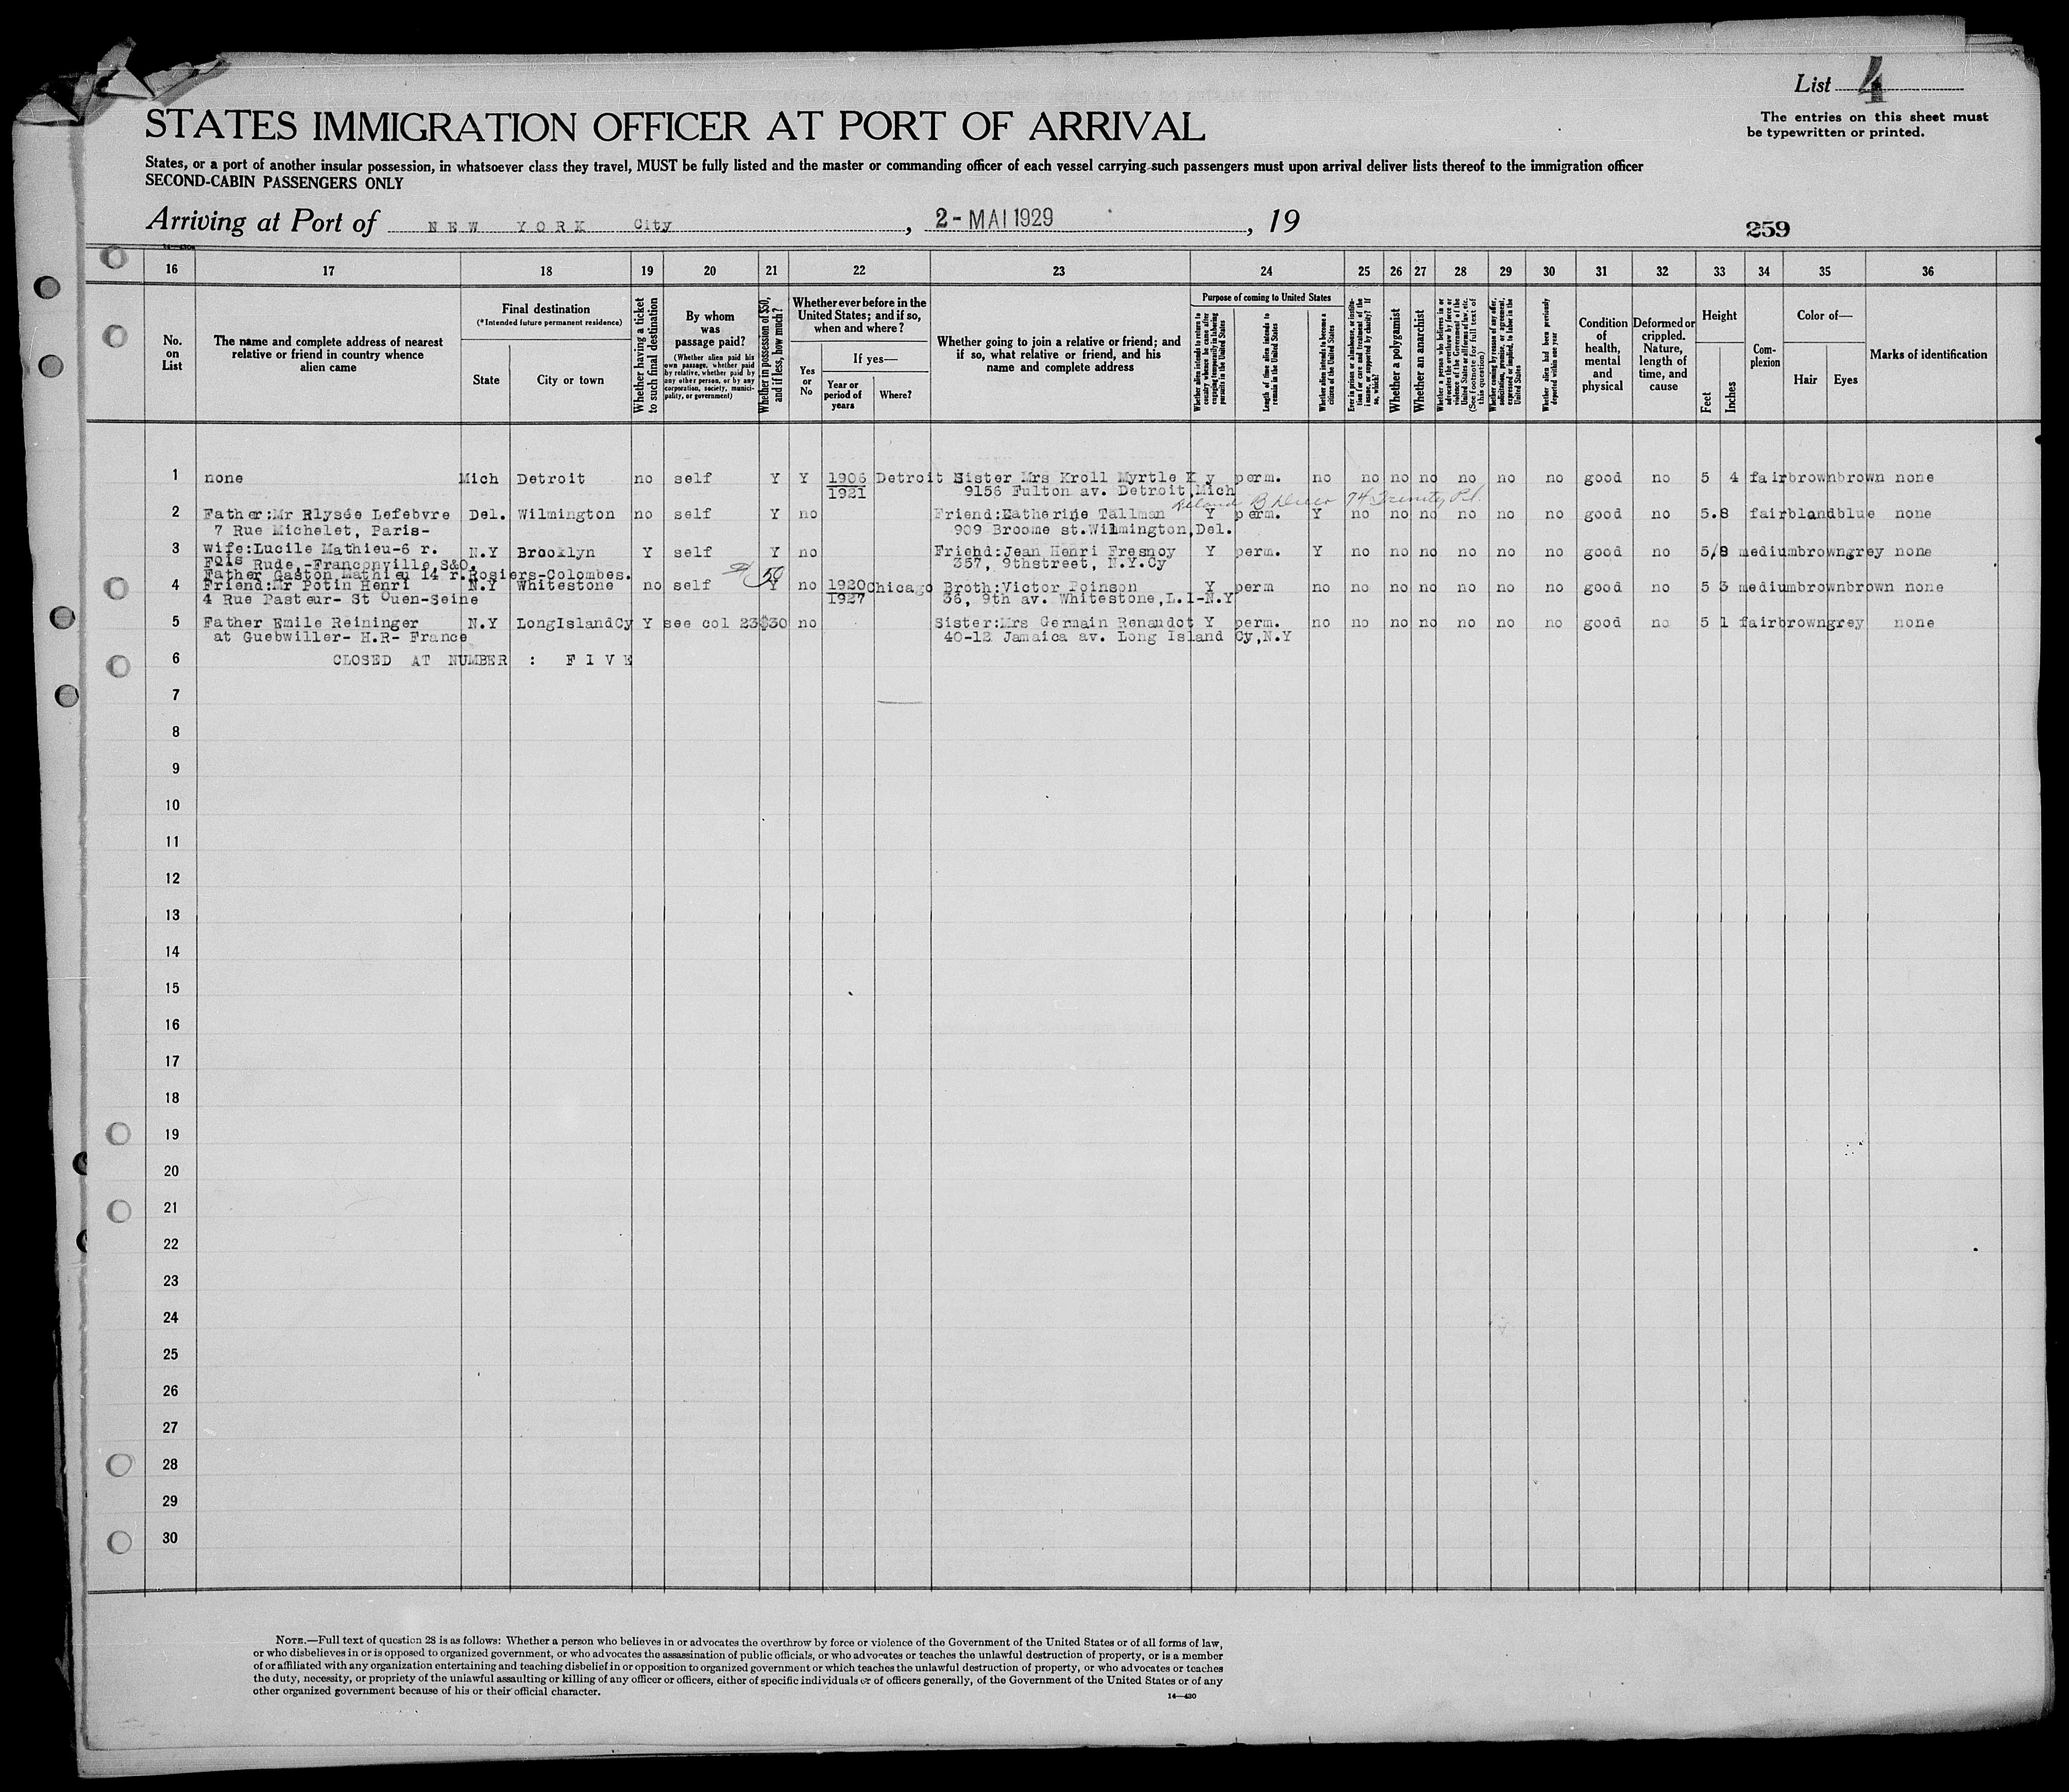 List 4
The entries on this sheet must
be typewritten or printed.
STATES IMMIGRATION OFFICER AT PORT OF ARRIVAL
States, or a port of another insular possession, in whatsoever class they travel, MUST be fully listed and the master or commanding officer of each vessel carrying such passengers must upon arrival deliver lists thereof to the immigration officer
SECOND-CABIN PASSENGERS ONLY
Arriving at Port of NEW YORK City, 2-MAI 1929, 19
259
16 17 18 19 20 21 22 23 24 25 26 27 28 29 30 31 32 33 34 35 36
No.
on
List
The name and complete address of nearest
relative or friend in country whence
alien came
Final destination
(*Intended future permanent residence)
State
City or town
Whether having a ticket
to such final destination
By whom
was
passage paid?
(Whether alien paid his
own passage, whether paid
by relative, whether paid by
any other person, or by any
corporation, society, munici-
pality, or government)
Whether in possession of $50,
and if less, how much?
Whether ever before in the
United States; and if so,
when and where?
Yes
or
No
If yes—
Year or
period of
years
Where?
Whether going to join a relative or friend; and
if so, what relative or friend, and his
name and complete address
Purpose of coming to United States
Whether alien intends to return to
country whence he came after
engaging temporarily in laboring
pursuits in the United States
Length of time alien intends to
remain in the United States
Whether alien intends to become a
citizen of the United States
Ever in prison or almshouse, or institu-
tion for care and treatment of the
insane, or supported by charity? If
so, which?
Whether a polygamist
Whether an anarchist
Whether a person who believes in or
advocates the overthrow by force or
violence of the Government of the
United States or all forms of law, etc.
(See footnote for full text of
this question)
Whether coming by reason of any offer,
solicitation, promise, or agreement,
expressed or implied, to labor in the
United States
Whether alien had been previously
deported within one year
Condition
of
health,
mental
and
physical
Deformed or
crippled.
Nature,
length of
time, and
cause
Height
Feet
Inches
Com-
plexion
Color of—
Hair
Eyes
Marks of identification
1 none Mich Detroit no self Y Y 1906 Detroit Sister Mrs Kroll Myrtle K y perm. no no no no no no no good no 5 4 fair brown brown none
1921 9156 Fulton av. Detroit, Mich
74 Trinity Pl.
2 Father:Mr Rlysée Lefebvre Del. Wilmington no self Y no Friend:Katherine Tallman Y perm. Y no no no no no no good no 5.8 fair bland blue none
7 Rue Michelet, Paris- 909 Broome st.Wilmington,Del.
3 wife:Lucile Mathieu-6 r. N.Y Brooklyn Y self Y no Friend:Jean Henri Fresnoy Y perm. Y no no no no no no good no 5/8 medium brown grey none
Fois Rude.-Franconville,S&O. 357, 9thstreet, N.Y.Cy
Father Gaston Mathieu 14 r.Rosiers-Colombes. 50
4 Friend:Mr Potin Henri N.Y Whitestone no self Y no 1920 Chicago Broth:Victor Poinson Y perm no no no no no no no good no 5 3 medium brown brown none
4 Rue Pasteur- St Ouen-Seine 1927 36, 9th av. Whitestone,L.I-N.Y
5 Father Emile Reininger N.Y LongIslandCy Y see col 23 $30 no Sister:Mrs Germain Renaudot Y perm. no no no no no no no good no 5 1 fair brown grey none
at Guebwiller- H.R- France 40-12 Jamaica av. Long Island Cy,N.Y
6 CLOSED AT NUMBER : FIVE
7
8
9
10
11
12
13
14
15
16
17
18
19
20
21
22
23
24
25
26
27
28
29
30
NOTE.—Full text of question 28 is as follows: Whether a person who believes in or advocates the overthrow by force or violence of the Government of the United States or of all forms of law,
or who disbelieves in or is opposed to organized government, or who advocates the assassination of public officials, or who advocates or teaches the unlawful destruction of property, or is a member
of or affiliated with any organization entertaining and teaching disbelief in or opposition to organized government or which teaches the unlawful destruction of property, or who advocates or teaches
the duty, necessity, or propriety of the unlawful assaulting or killing of any officer or officers, either of specific individuals or of officers generally, of the Government of the United States or of any
other organized government because of his or their official character.
14—430